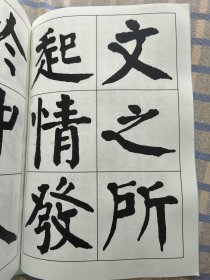 文之所
起情發